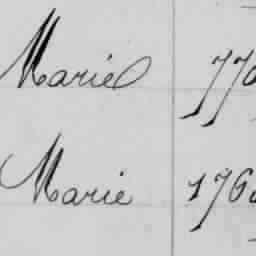 Marie 770
Marie 1760